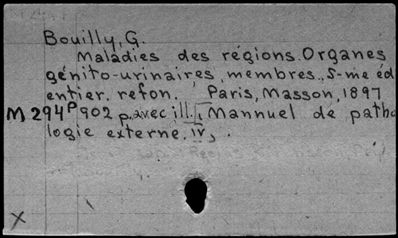 Bouilly, G.
Maladies des régions. Organes
génito-urinaires, membres., 5-me éd
entier. refon. Paris, Masson, 1897
M294P 902 p. avec ill. I, Mannuel de patho
logie externe. IV, .
X